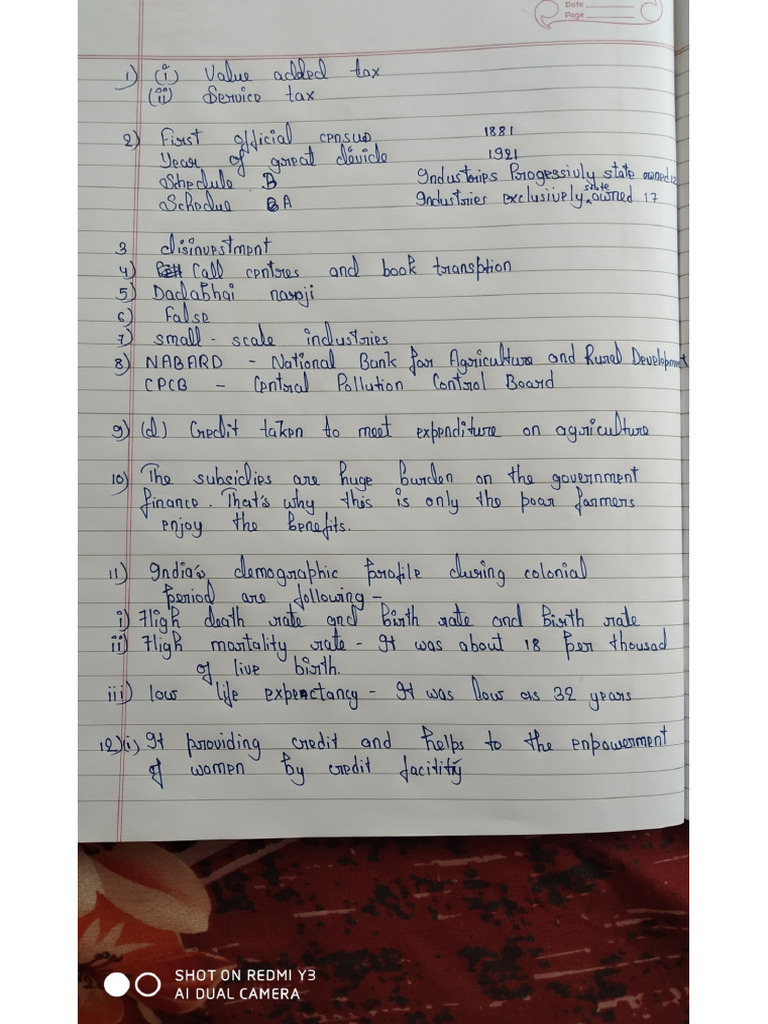 Date
Page
1) (i) Value added tax
(ii) Service tax
2) First official census 1881
Year of great devide 1921
Shedule B Industories Progessivly state owned 12
Schedue A Industries exclusively state owned 17
3 disinvestment
4) Call centres and book transption
5) Dadabhai naroji
6) False
7) small-scale industries
8) NABARD - National Bank for Agriculture and Rural Development
CPCB - Central Pollution Control Board
9) (d) Credit taken to meet expenditure on agriculture
10) The subsidies are huge burden on the government
finance. That's why this is only the poar farmers
enjoy the benefits.
11) India's demographic profile during colonial
period are following -
i) High death rate and Birth rate and Birth rate
ii) High mortality rate - It was about 18 per thousad
of live birth.
iii) low life expenctancy - It was low as 32 years
12)i) It providing credit and helps to the enpowerment
of women by credit facility
SHOT ON REDMI Y3
AI DUAL CAMERA